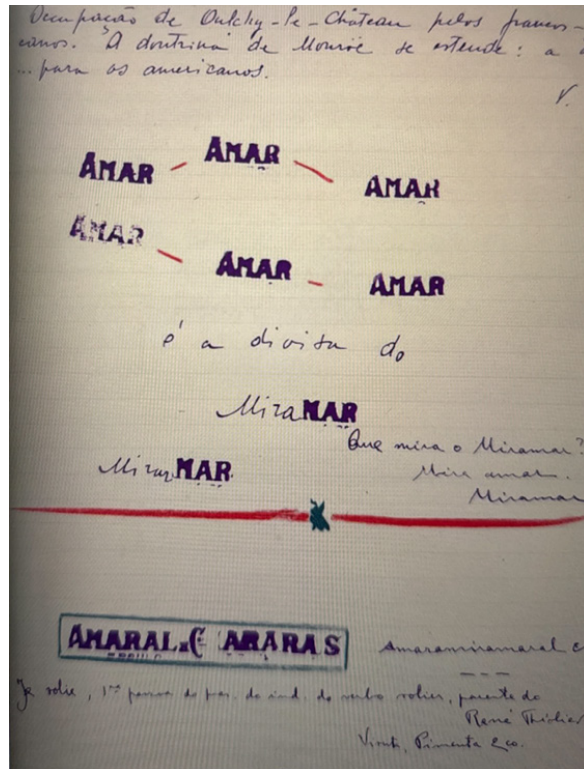 Ocupação de Oulchy-le-Château pelos franco-
canos. A doutrina de Monroe se estende: a
...para os americanos.
V.
AMAR – AMAR – AMAR
AMAR – AMAR – AMAR
é a divisa do
MiraMAR
Que mira o Miramar?
MiraMAR
Mira amar.
Miramar
AMARAL.C ARARAS
Amaramiramaral c
Je rolie, 1re do ind. do verbo rolier, parente do
René Thiollier
Viruta, Pimenta & co.